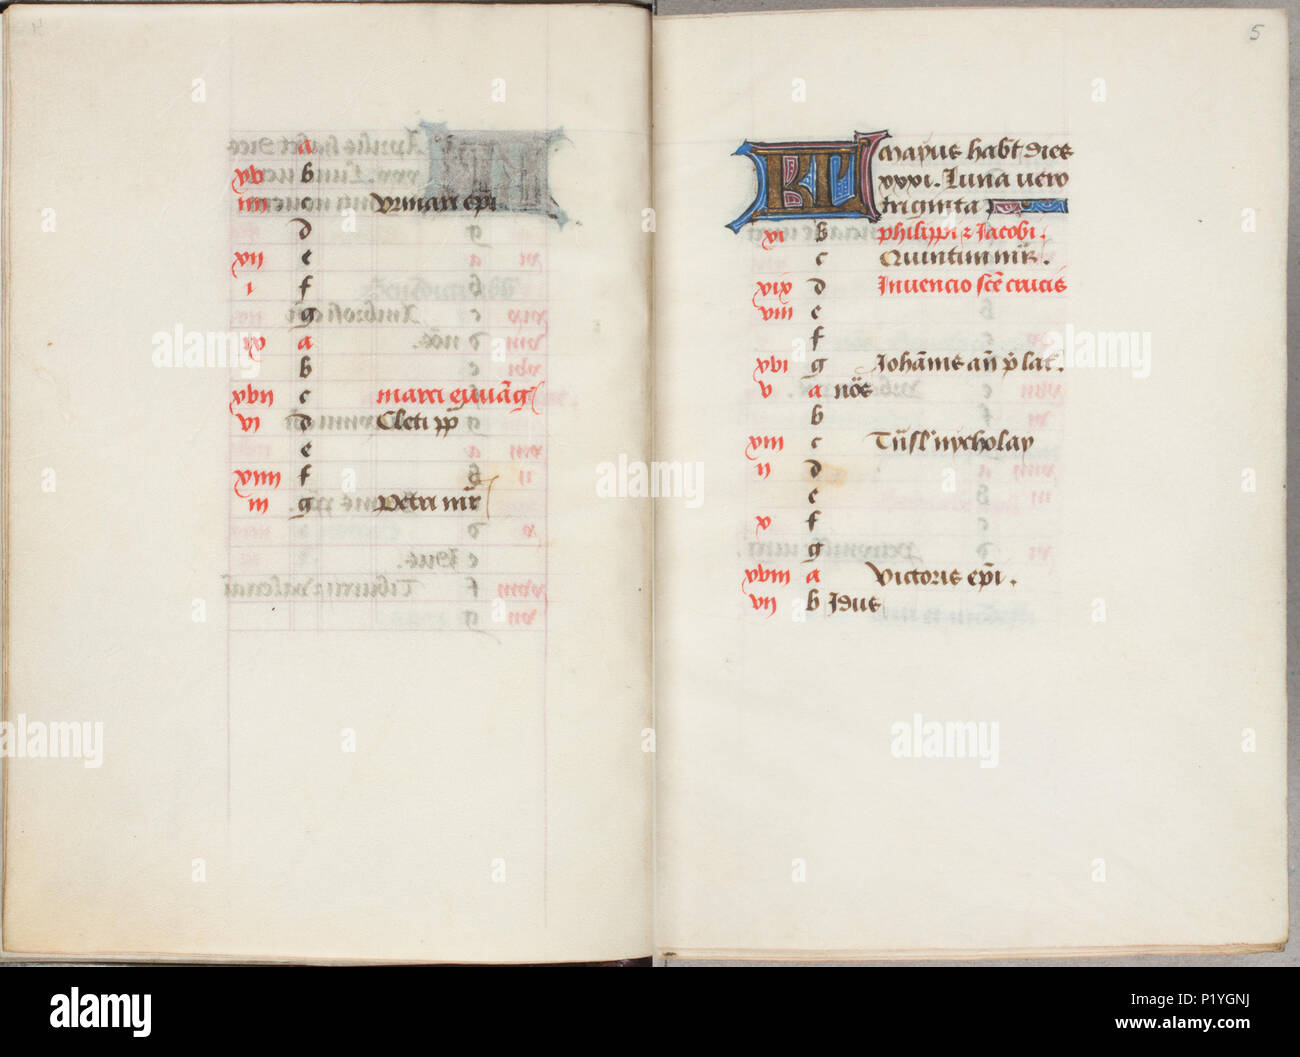 a
xv b
iiii c Urmari ep̄i
d
xii e
i f
g
ix a
b
xvii c marci ewāg
vi d Cleti pp
e
xiiii f
iii g Petri mr̄
5
KL Mayus habt dies
xxxi. Luna vero
triginta
xi b philippi ⁊ Jacobi.
c Quintini mr̄.
xix d Invencio sce crucis
viii e
f
xvi g Johānis an̄ p lat.
v a nōs
b
xiii c Tn̄sl' nycholay
ii d
e
x f
g
xviii a Victoris ep̄i.
vii b Idus
alamy
www.alamy.com
Image ID: P1YGNJ